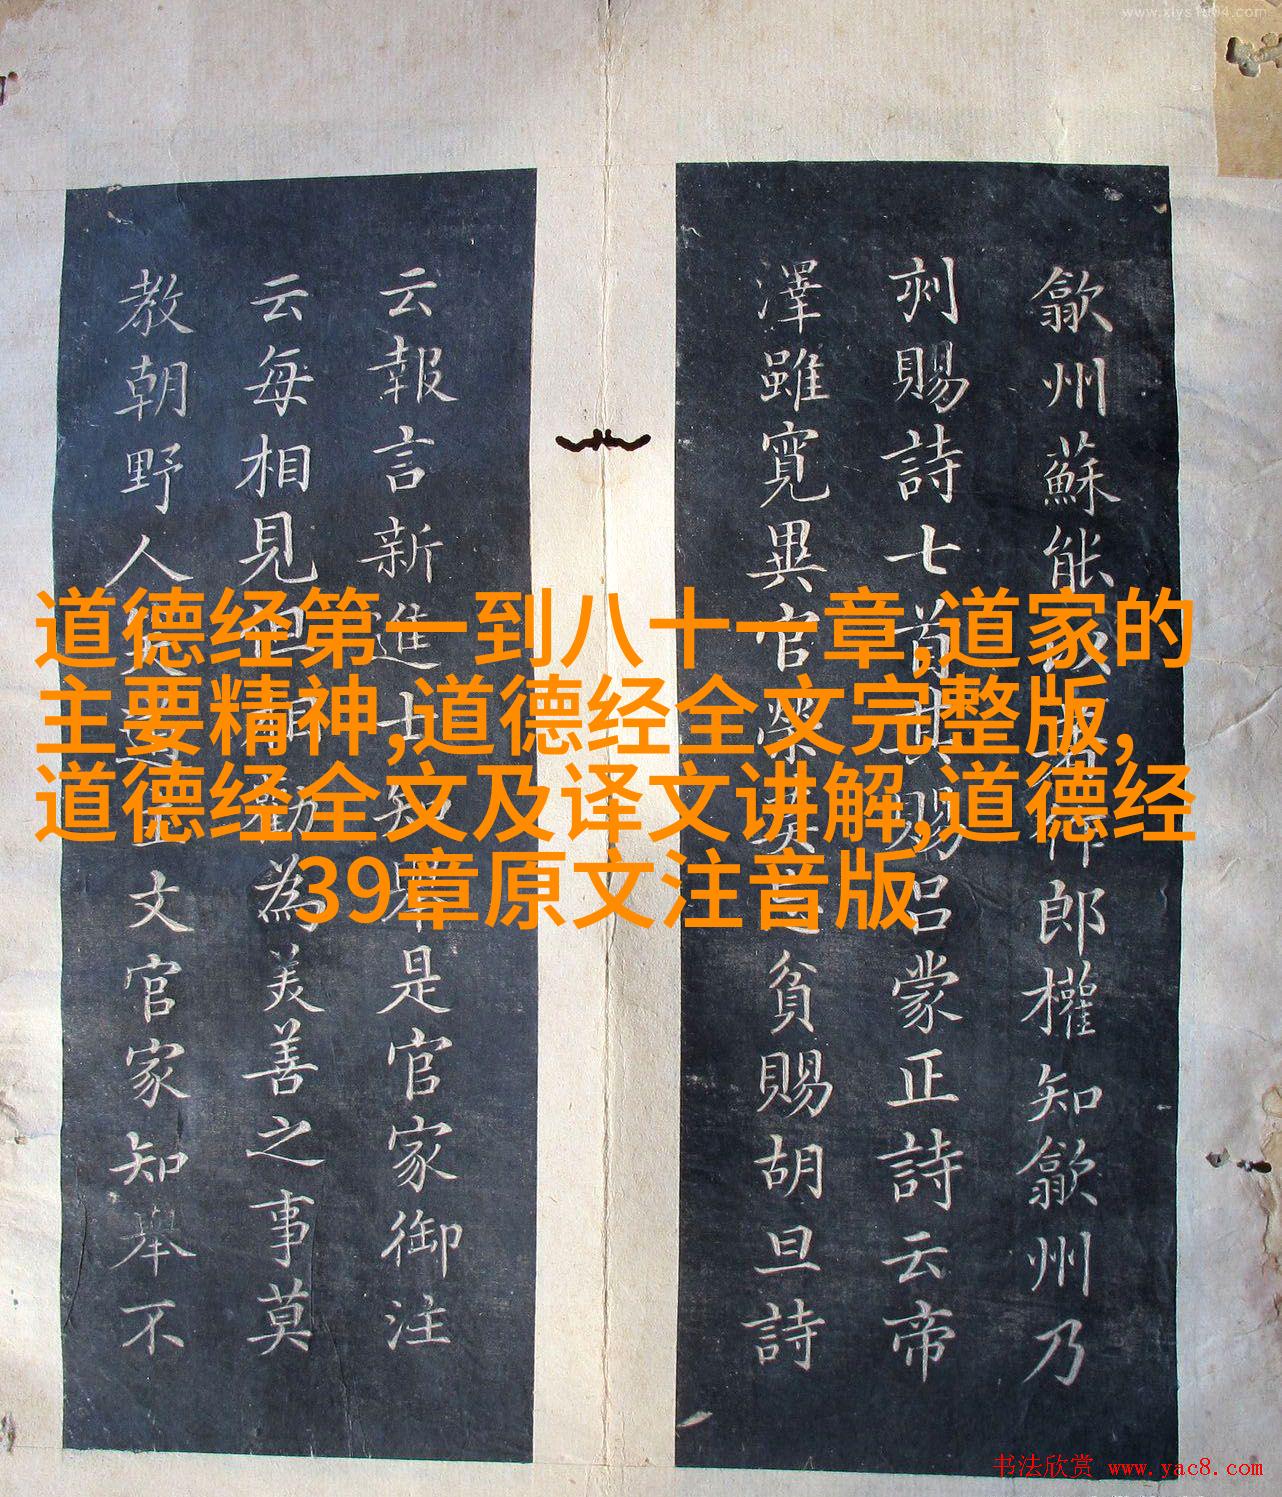 www.xlys1904.com
歙州蘇能
郎權知歙州乃
刺賜詩七首其賜吕蒙正詩云帝
澤雖寛異官榮
貧賜胡旦詩
云報言新進士知
是官家御注
云每相見但相勸為美善之事莫
教朝野人
文官家知舉不
道德经第一到八十一章,道家的
主要精神,道德经全文完整版,
道德经全文及译文讲解,道德经
39章原文注音版
书法欣赏 www.yac8.com